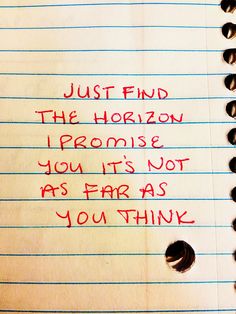 JUST FIND
THE HORIZON
I PROMISE
YOU IT'S NOT
AS FAR AS
YOU THINK